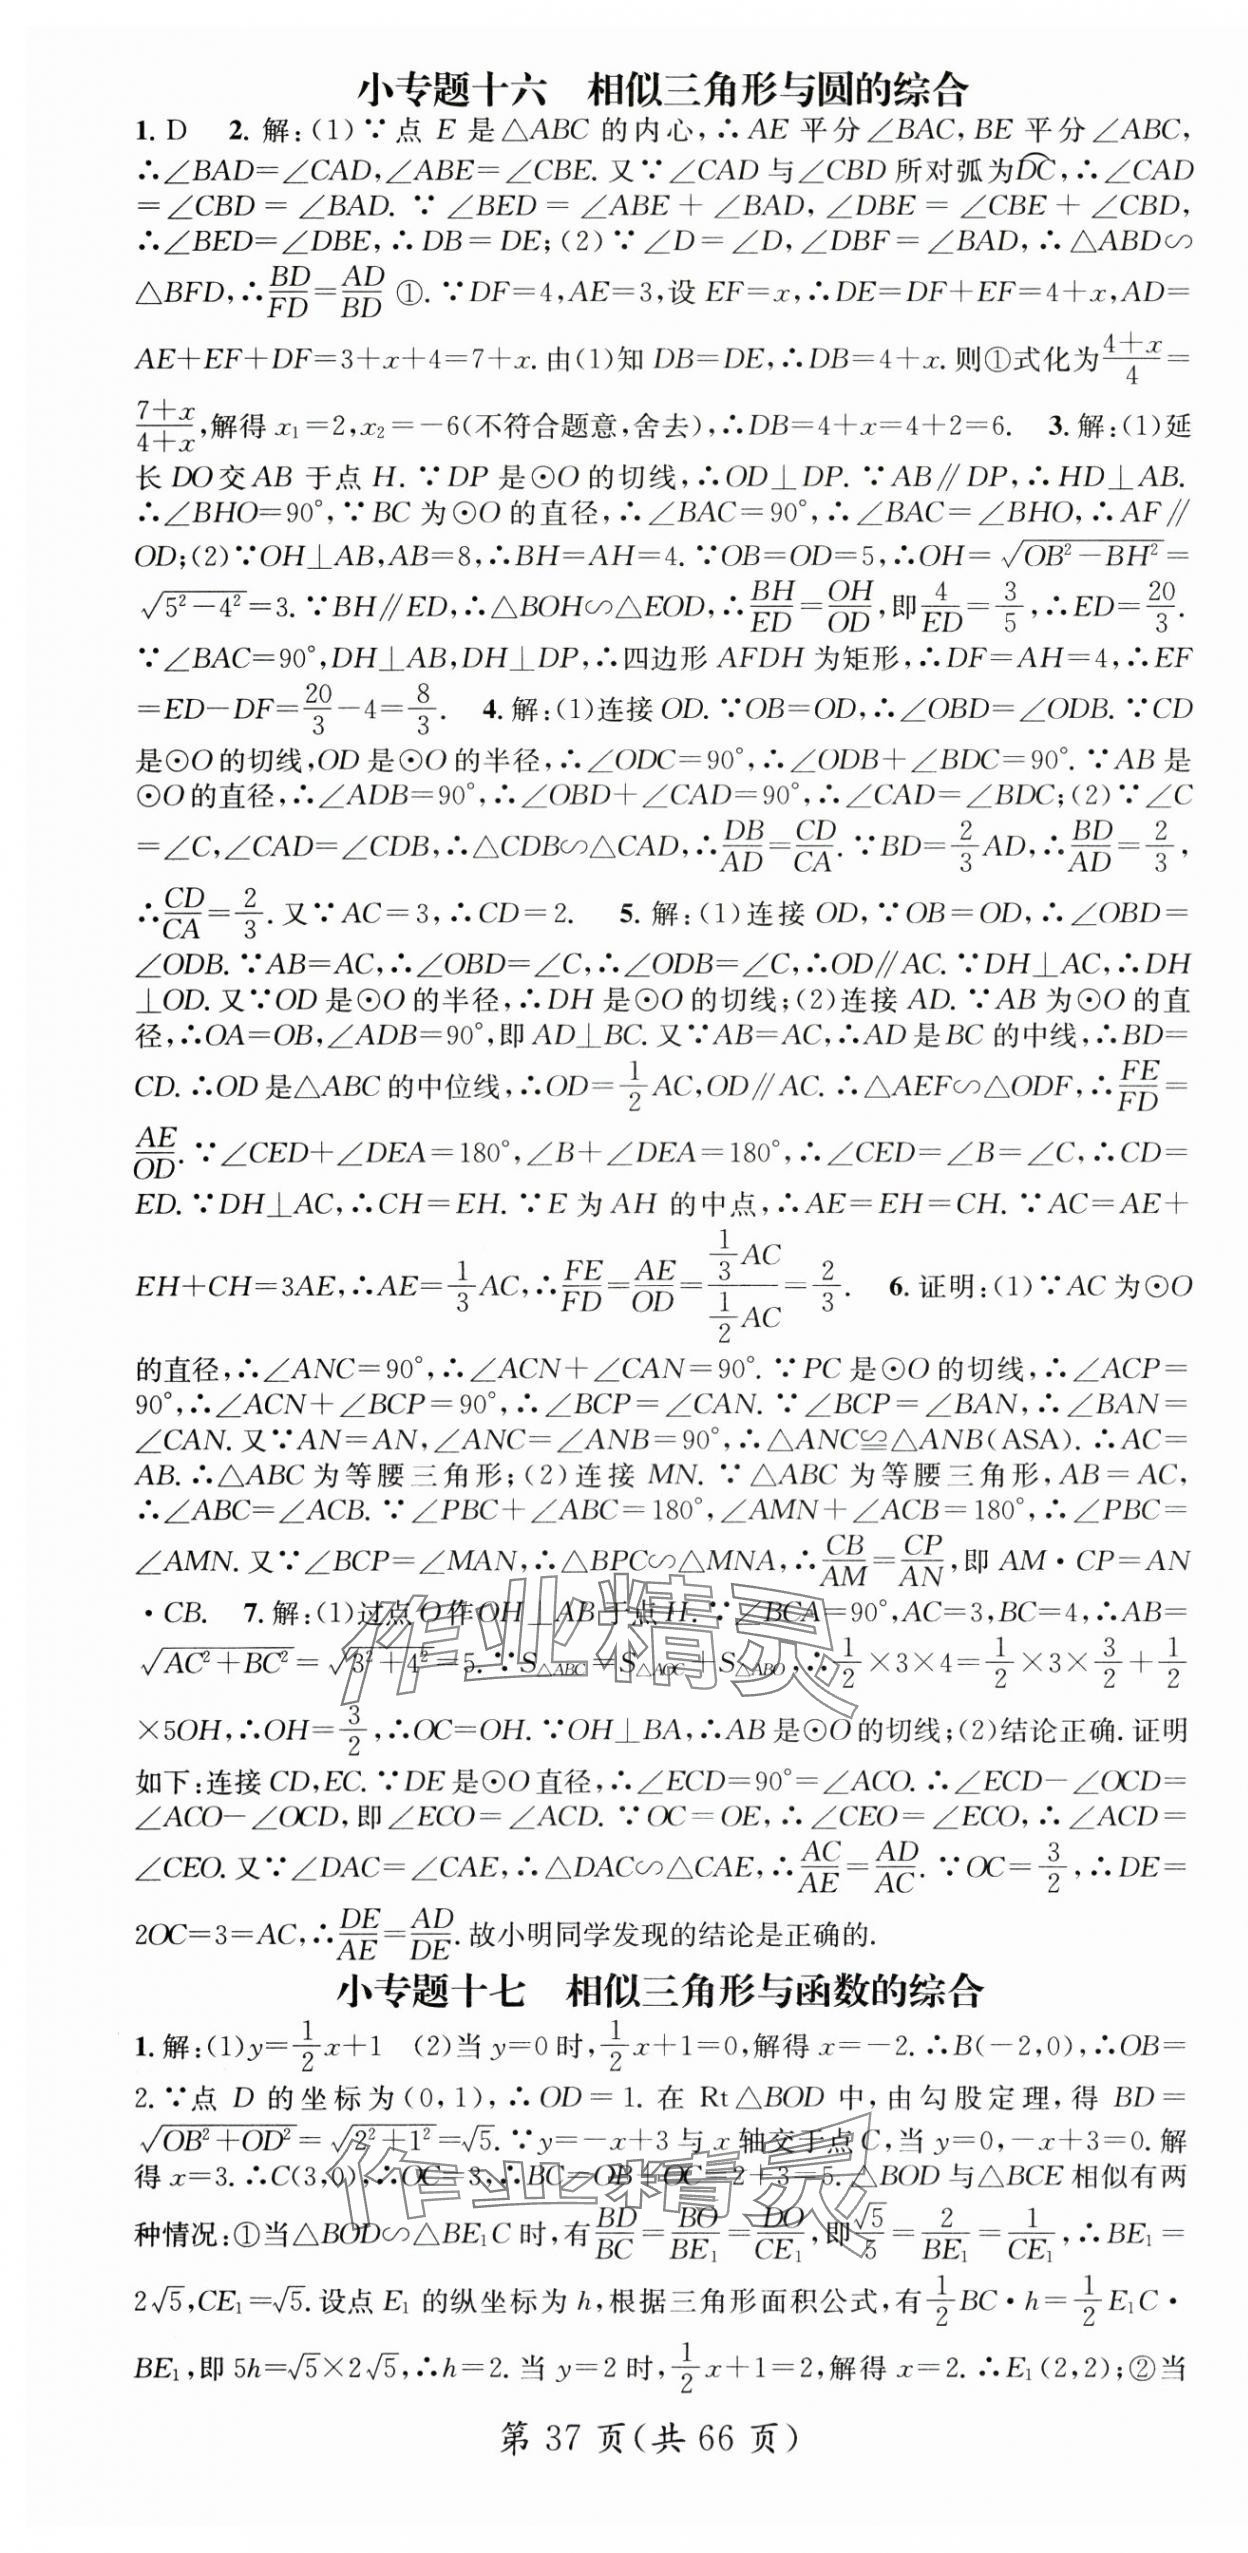 小专题十六　相似三角形与圆的综合
1. D　2. 解:(1)∵点 E 是△ABC 的内心,∴AE 平分∠BAC,BE 平分∠ABC,
∴∠BAD=∠CAD,∠ABE=∠CBE. 又∵∠CAD 与∠CBD 所对弧为⌒DC,∴∠CAD
=∠CBD=∠BAD. ∵∠BED=∠ABE+∠BAD,∠DBE=∠CBE+∠CBD,
∴∠BED=∠DBE,∴DB=DE;(2)∵∠D=∠D,∠DBF=∠BAD,∴△ABD∽
△BFD,∴BD/FD=AD/BD ①. ∵DF=4,AE=3,设 EF=x,∴DE=DF+EF=4+x,AD=
AE+EF+DF=3+x+4=7+x. 由(1)知 DB=DE,∴DB=4+x. 则①式化为(4+x)/4=
(7+x)/(4+x),解得 x₁=2,x₂=-6(不符合题意,舍去),∴DB=4+x=4+2=6.　3. 解:(1)延
长 DO 交 AB 于点 H. ∵DP 是⊙O 的切线,∴OD⊥DP. ∵AB∥DP,∴HD⊥AB.
∴∠BHO=90°,∵BC 为⊙O 的直径,∴∠BAC=90°,∴∠BAC=∠BHO,∴AF∥
OD;(2)∵OH⊥AB,AB=8,∴BH=AH=4. ∵OB=OD=5,∴OH=√(OB²-BH²)=
√(5²-4²)=3. ∵BH∥ED,∴△BOH∽△EOD,∴BH/ED=OH/OD,即4/ED=3/5,∴ED=20/3.
∵∠BAC=90°,DH⊥AB,DH⊥DP,∴四边形 AFDH 为矩形,∴DF=AH=4,∴EF
=ED-DF=20/3-4=8/3.　4. 解:(1)连接 OD. ∵OB=OD,∴∠OBD=∠ODB. ∵CD
是⊙O 的切线,OD 是⊙O 的半径,∴∠ODC=90°,∴∠ODB+∠BDC=90°. ∵AB 是
⊙O 的直径,∴∠ADB=90°,∴∠OBD+∠CAD=90°,∴∠CAD=∠BDC;(2)∵∠C
=∠C,∠CAD=∠CDB,∴△CDB∽△CAD,∴DB/AD=CD/CA. ∵BD=2/3AD,∴BD/AD=2/3,
∴CD/CA=2/3. 又∵AC=3,∴CD=2.　5. 解:(1)连接 OD,∵OB=OD,∴∠OBD=
∠ODB. ∵AB=AC,∴∠OBD=∠C,∴∠ODB=∠C,∴OD∥AC. ∵DH⊥AC,∴DH
⊥OD. 又∵OD 是⊙O 的半径,∴DH 是⊙O 的切线;(2)连接 AD. ∵AB 为⊙O 的直
径,∴OA=OB,∠ADB=90°,即 AD⊥BC. 又∵AB=AC,∴AD 是 BC 的中线,∴BD=
CD. ∴OD 是△ABC 的中位线,∴OD=1/2AC,OD∥AC. ∴△AEF∽△ODF,∴FE/FD=
AE/OD. ∵∠CED+∠DEA=180°,∠B+∠DEA=180°,∴∠CED=∠B=∠C,∴CD=
ED. ∵DH⊥AC,∴CH=EH. ∵E 为 AH 的中点,∴AE=EH=CH. ∵AC=AE+
EH+CH=3AE,∴AE=1/3AC,∴FE/FD=AE/OD=(1/3AC)/(1/2AC)=2/3.　6. 证明:(1)∵AC 为⊙O
的直径,∴∠ANC=90°,∴∠ACN+∠CAN=90°. ∵PC 是⊙O 的切线,∴∠ACP=
90°,∴∠ACN+∠BCP=90°,∴∠BCP=∠CAN. ∵∠BCP=∠BAN,∴∠BAN=
∠CAN. 又∵AN=AN,∠ANC=∠ANB=90°,∴△ANC≌△ANB(ASA). ∴AC=
AB. ∴△ABC 为等腰三角形;(2)连接 MN. ∵△ABC 为等腰三角形,AB=AC,
∴∠ABC=∠ACB. ∵∠PBC+∠ABC=180°,∠AMN+∠ACB=180°,∴∠PBC=
∠AMN. 又∵∠BCP=∠MAN,∴△BPC∽△MNA,∴CB/AM=CP/AN,即 AM·CP=AN
·CB.　7. 解:(1)过点 O 作 OH⊥AB 于点 H. ∵∠BCA=90°,AC=3,BC=4,∴AB=
√(AC²+BC²)=√(3²+4²)=5. ∵S△ABC=S△AOC+S△ABO,∴1/2×3×4=1/2×3×3/2+1/2
×5OH,∴OH=3/2,∴OC=OH. ∵OH⊥BA,∴AB 是⊙O 的切线;(2)结论正确. 证明
如下:连接 CD,EC. ∵DE 是⊙O 直径,∴∠ECD=90°=∠ACO. ∴∠ECD-∠OCD=
∠ACO-∠OCD,即∠ECO=∠ACD. ∵OC=OE,∴∠CEO=∠ECO,∴∠ACD=
∠CEO. 又∵∠DAC=∠CAE,∴△DAC∽△CAE,∴AC/AE=AD/AC. ∵OC=3/2,∴DE=
2OC=3=AC,∴DE/AE=AD/DE. 故小明同学发现的结论是正确的.
小专题十七　相似三角形与函数的综合
1. 解:(1)y=1/2x+1　(2)当 y=0 时,1/2x+1=0,解得 x=-2. ∴B(-2,0),∴OB=
2. ∵点 D 的坐标为(0,1),∴OD=1. 在 Rt△BOD 中,由勾股定理,得 BD=
√(OB²+OD²)=√(2²+1²)=√5. ∵y=-x+3 与 x 轴交于点 C,当 y=0,-x+3=0. 解
得 x=3. ∴C(3,0),∴OC=3,∴BC=OB+OC=2+3=5. △BOD 与△BCE 相似有两
种情况:①当△BOD∽△BE₁C 时,有BD/BC=BO/BE₁=DO/CE₁,即√5/5=2/BE₁=1/CE₁,∴BE₁=
2√5,CE₁=√5. 设点 E₁ 的纵坐标为 h,根据三角形面积公式,有1/2BC·h=1/2E₁C·
BE₁,即 5h=√5×2√5,∴h=2. 当 y=2 时,1/2x+1=2,解得 x=2. ∴E₁(2,2);②当
第 37 页(共 66 页)
作业精灵
作业精灵